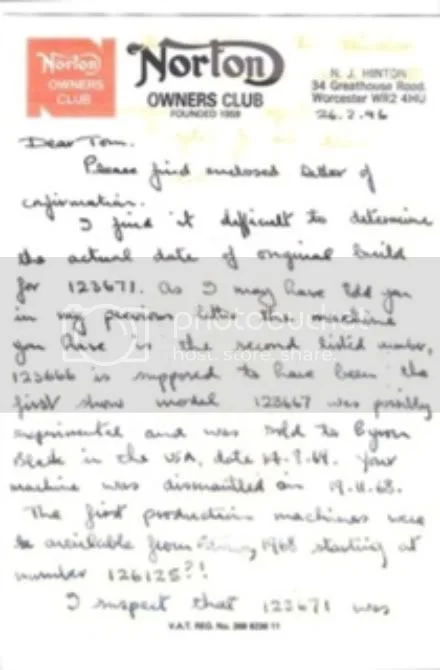 Norton
OWNERS CLUB
Norton
OWNERS CLUB
FOUNDED 1959
N. J. HINTON
34 Greathouse Road
Worcester WR2 4HU
26.2.96
Dear Tom.
Please find enclosed letter of
confirmation.
I find it difficult to determine
the actual date of original build
for 123671. As I may have told you
in my previous letter the machine
you have is the second listed number,
123666 is supposed to have been the
first show model 123667 was possibly
experimental and was sold to Byron
Black in the USA, date Your
machine was dismantled on 19.11.68.
The first production machines were
be available from 1968 starting at
number 126125?!
I suspect that 123671 was
V.A.T. REG. No.
photobucket
host. store. share.